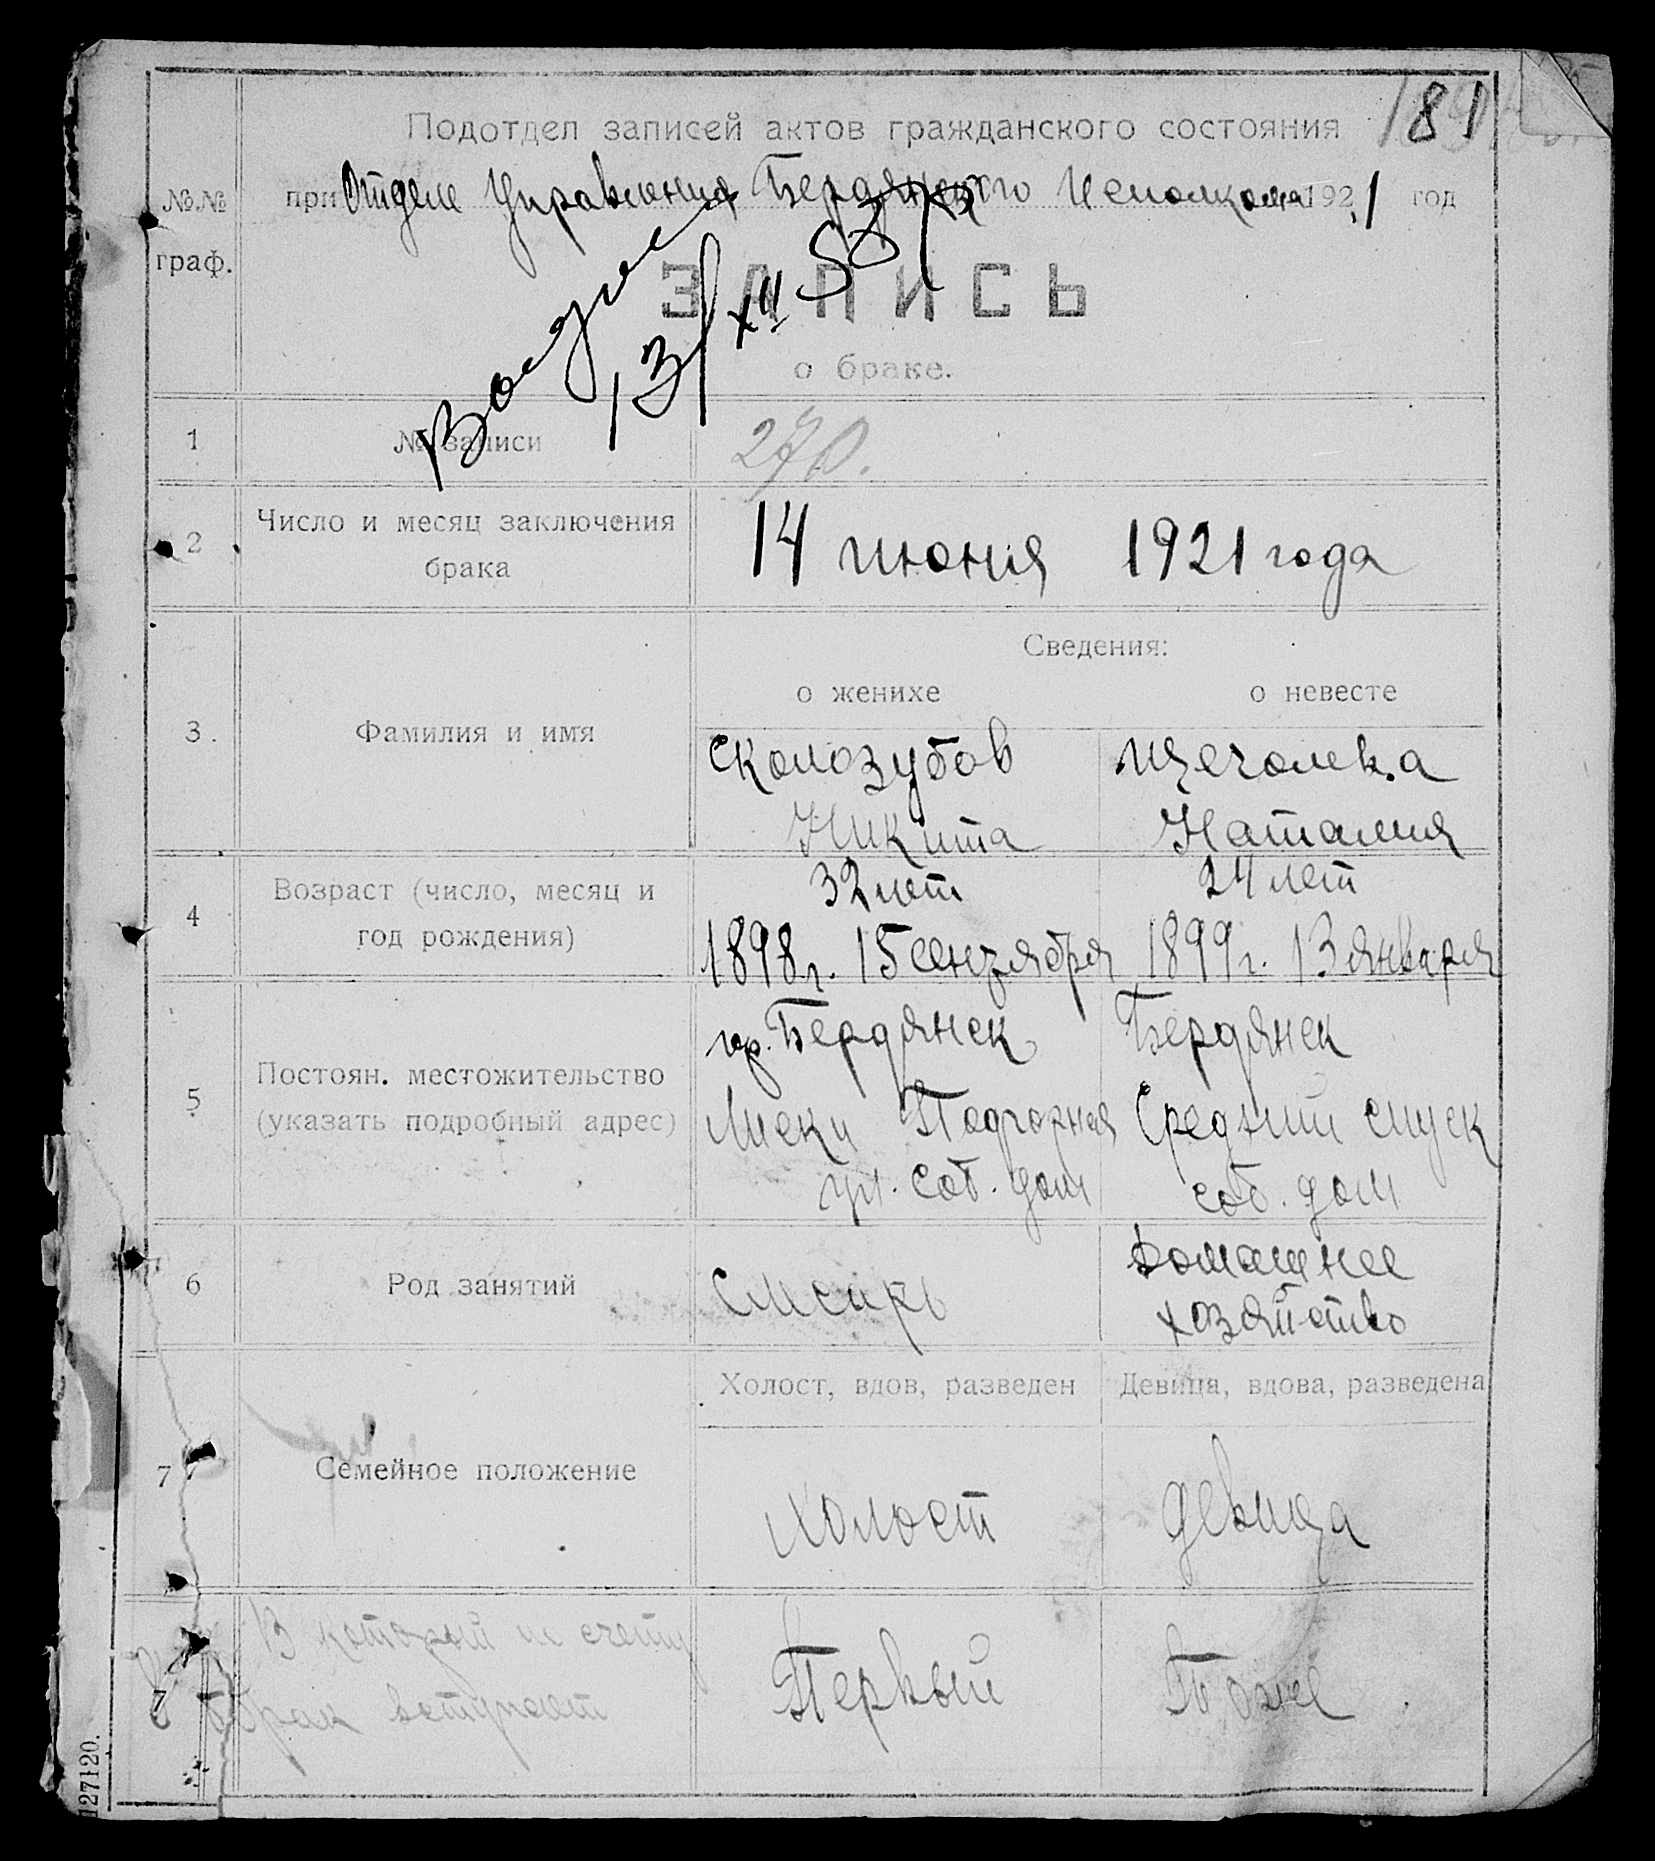 181
Подотдел записей актов гражданского состояния
№№ граф.
при Отделе Управления Бердянского Исполкома 1921 год
ЗАПИСЬ
о браке.
13/XII 58
1 № записи 270.
2 Число и месяц заключения брака
14 июня 1921 года
Сведения:
о женихе о невесте
3. Фамилия и имя
Сколозубов Щеголева
Никита Наталия
4 Возраст (число, месяц и год рождения)
32 лет 24 лет
1898 г. 15 сентября 1899 г. 13 января
5 Постоян. местожительство (указать подробный адрес)
гор. Бердянск Бердянск
Лиски Подгорная Средний спуск
ул. соб. дом соб. дом
6 Род занятий
Слесарь Домашнее
хозяйство
Холост, вдов, разведен Девица, вдова, разведена
7 Семейное положение
холост девица
В который по счету
брак вступает
Первый Тоже
127120.